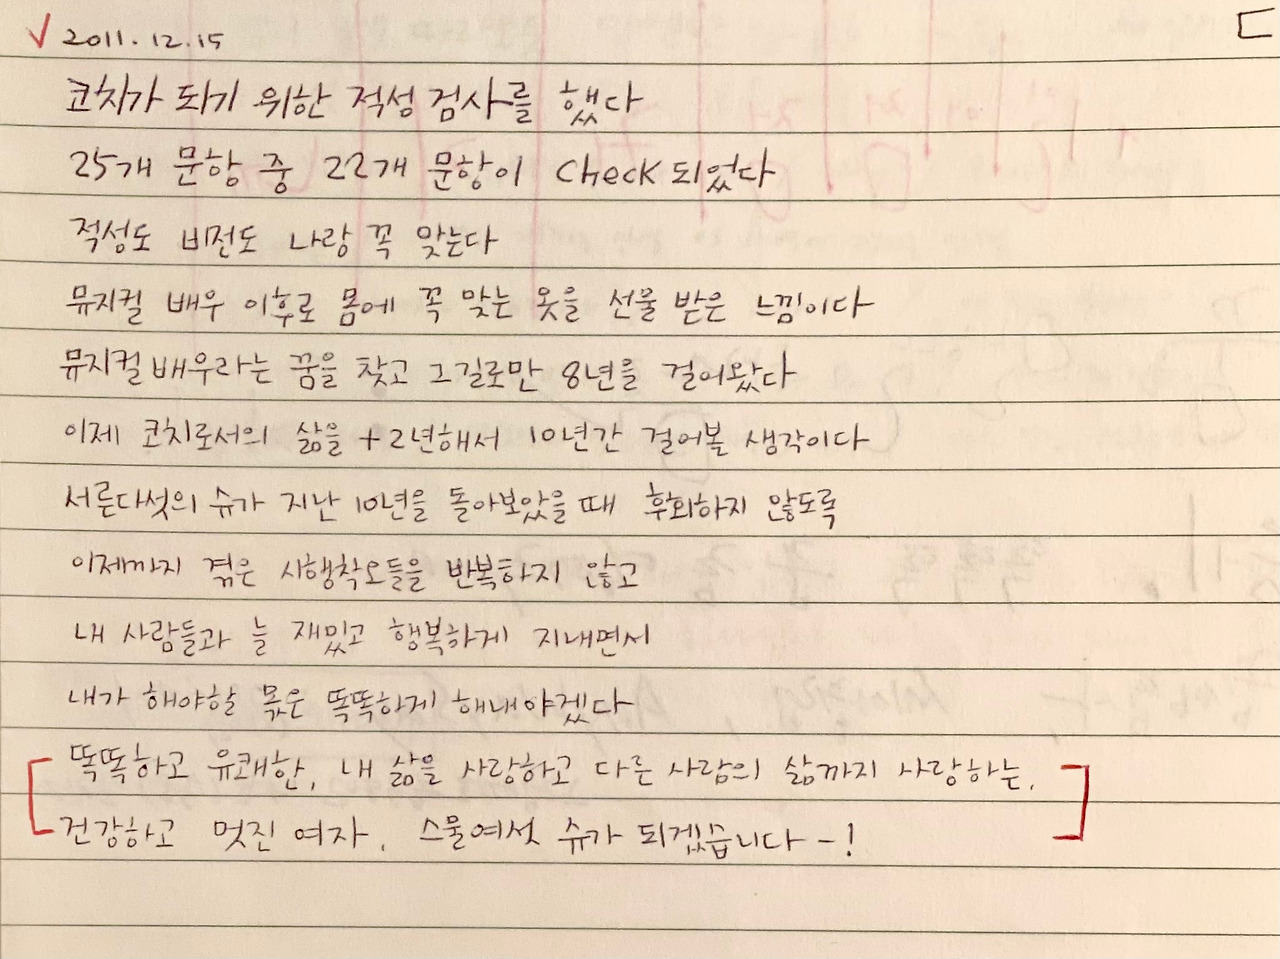 2011.12.15
코치가 되기 위한 적성 검사를 했다
25개 문항 중 22개 문항이 check 되었다
적성도 비전도 나랑 꼭 맞는다
뮤지컬 배우 이후로 몸에 꼭 맞는 옷을 선물 받은 느낌이다
뮤지컬 배우라는 꿈을 찾고 그길로만 8년을 걸어왔다
이제 코치로서의 삶을 +2년해서 10년간 걸어볼 생각이다
서른다섯의 슈가 지난 10년을 돌아보았을 때 후회하지 않도록
이제까지 겪은 시행착오들을 반복하지 않고
내 사람들과 늘 재밌고 행복하게 지내면서
내가 해야할 몫은 똑똑하게 해내야겠다
똑똑하고 유쾌한, 내 삶을 사랑하고 다른 사람의 삶까지 사랑하는,
건강하고 멋진 여자, 스물여섯 슈가 되겠습니다-!